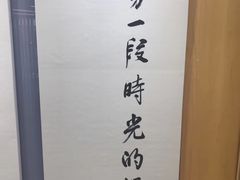 一段時光的